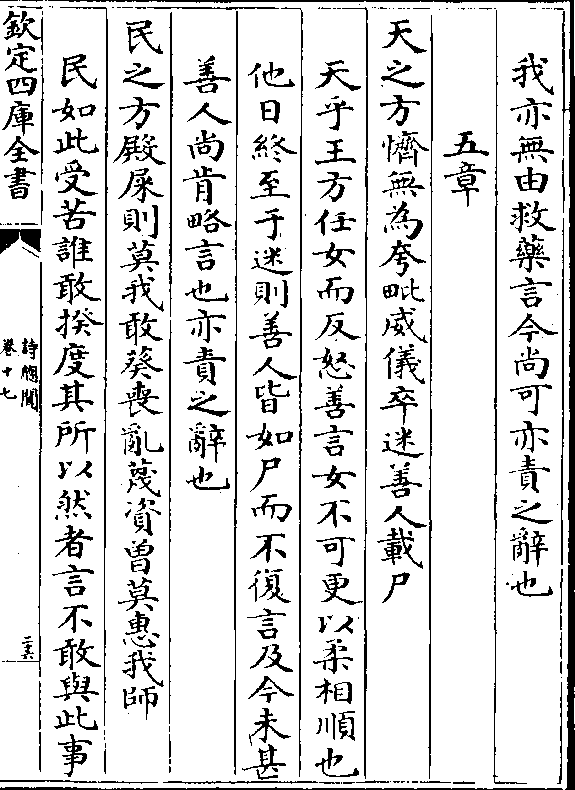 我亦無由救藥言今尚可亦責之辭也
五章
天之方懠無為夸毗威儀卒迷善人載尸
天乎王方任女而反怒善言女不可更以柔相順也
他日終至于迷則善人皆如尸而不復言及今未甚
善人尚肯略言也亦責之辭也
民之方殿屎則莫我敢葵喪亂蔑資曾莫惠我師
民如此受苦誰敢揆度其所以然者言不敢與此事
欽定四庫全書
詩總聞
卷十七
二六